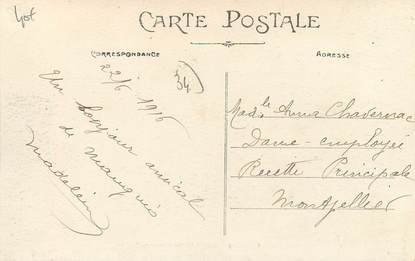 CARTE POSTALE
CORRESPONDANCE
ADRESSE
22/6 1916
34
Un bonjour amical
de Mauguio
Madeleine
Madlle Anna Chavernac
Dame-employée
Recette Principale
Montpellier